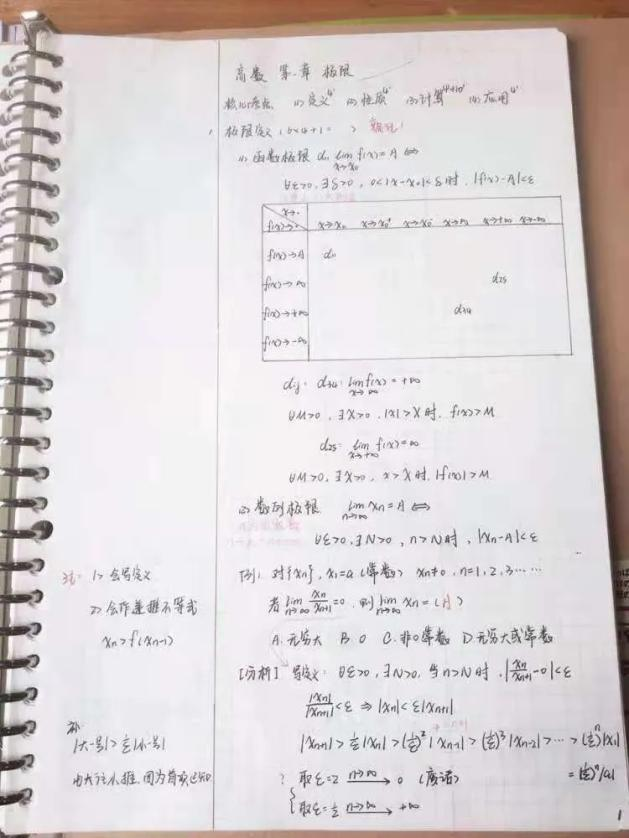 高数 第一章 极限
核心考点 (1)定义4' (2)性质4' (3)计算4'+10' (4)应用4'
极限定义
(1) 函数极限 d₁₁ lim_{x→x₀} f(x)=A ⇔
∀ε>0, ∃δ>0, 0<|x-x₀|<δ时, |f(x)-A|<ε
x→·
f(x)→· x→x₀ x→x₀⁺ x→x₀⁻ x→∞ x→+∞ x→-∞
f(x)→A d₁₁
f(x)→∞ d₂₅
f(x)→+∞ d₃₄
f(x)→-∞
dᵢⱼ: d₃₄: lim_{x→∞} f(x)=+∞
∀M>0, ∃X>0, |x|>X时, f(x)>M
d₂₅: lim_{x→+∞} f(x)=∞
∀M>0, ∃X>0, x>X时, |f(x)|>M
(2) 数列极限 lim_{n→∞} xₙ=A ⇔
∀ε>0, ∃N>0, n>N时, |xₙ-A|<ε
注: 1> 会写定义
2> 会作递推不等式
xₙ>f(xₙ₋₁)
[例1 对{xₙ}, x₁=a(常数) xₙ≠0, n=1,2,3……
若 lim_{n→∞} xₙ/xₙ₊₁=0, 则 lim_{n→∞} xₙ=(A)
A.无穷大 B.0 C.非0常数 D.无穷大或常数
[分析] 写定义: ∀ε>0, ∃N>0, 当n>N时, |xₙ/xₙ₊₁-0|<ε
|xₙ|/|xₙ₊₁|<ε ⇒ |xₙ|<ε|xₙ₊₁|
|xₙ₊₁|>1/ε|xₙ|>(1/ε)²|xₙ₋₁|>(1/ε)³|xₙ₋₂|>…>(1/ε)ⁿ|x₁|
=(1/ε)ⁿ|a|
|大-号|>1/ε|小-号|
由大往小推,因为首项已知
? 取ε=2 n→∞ → 0 (废话)
取ε=1/2 n→∞ → +∞
1